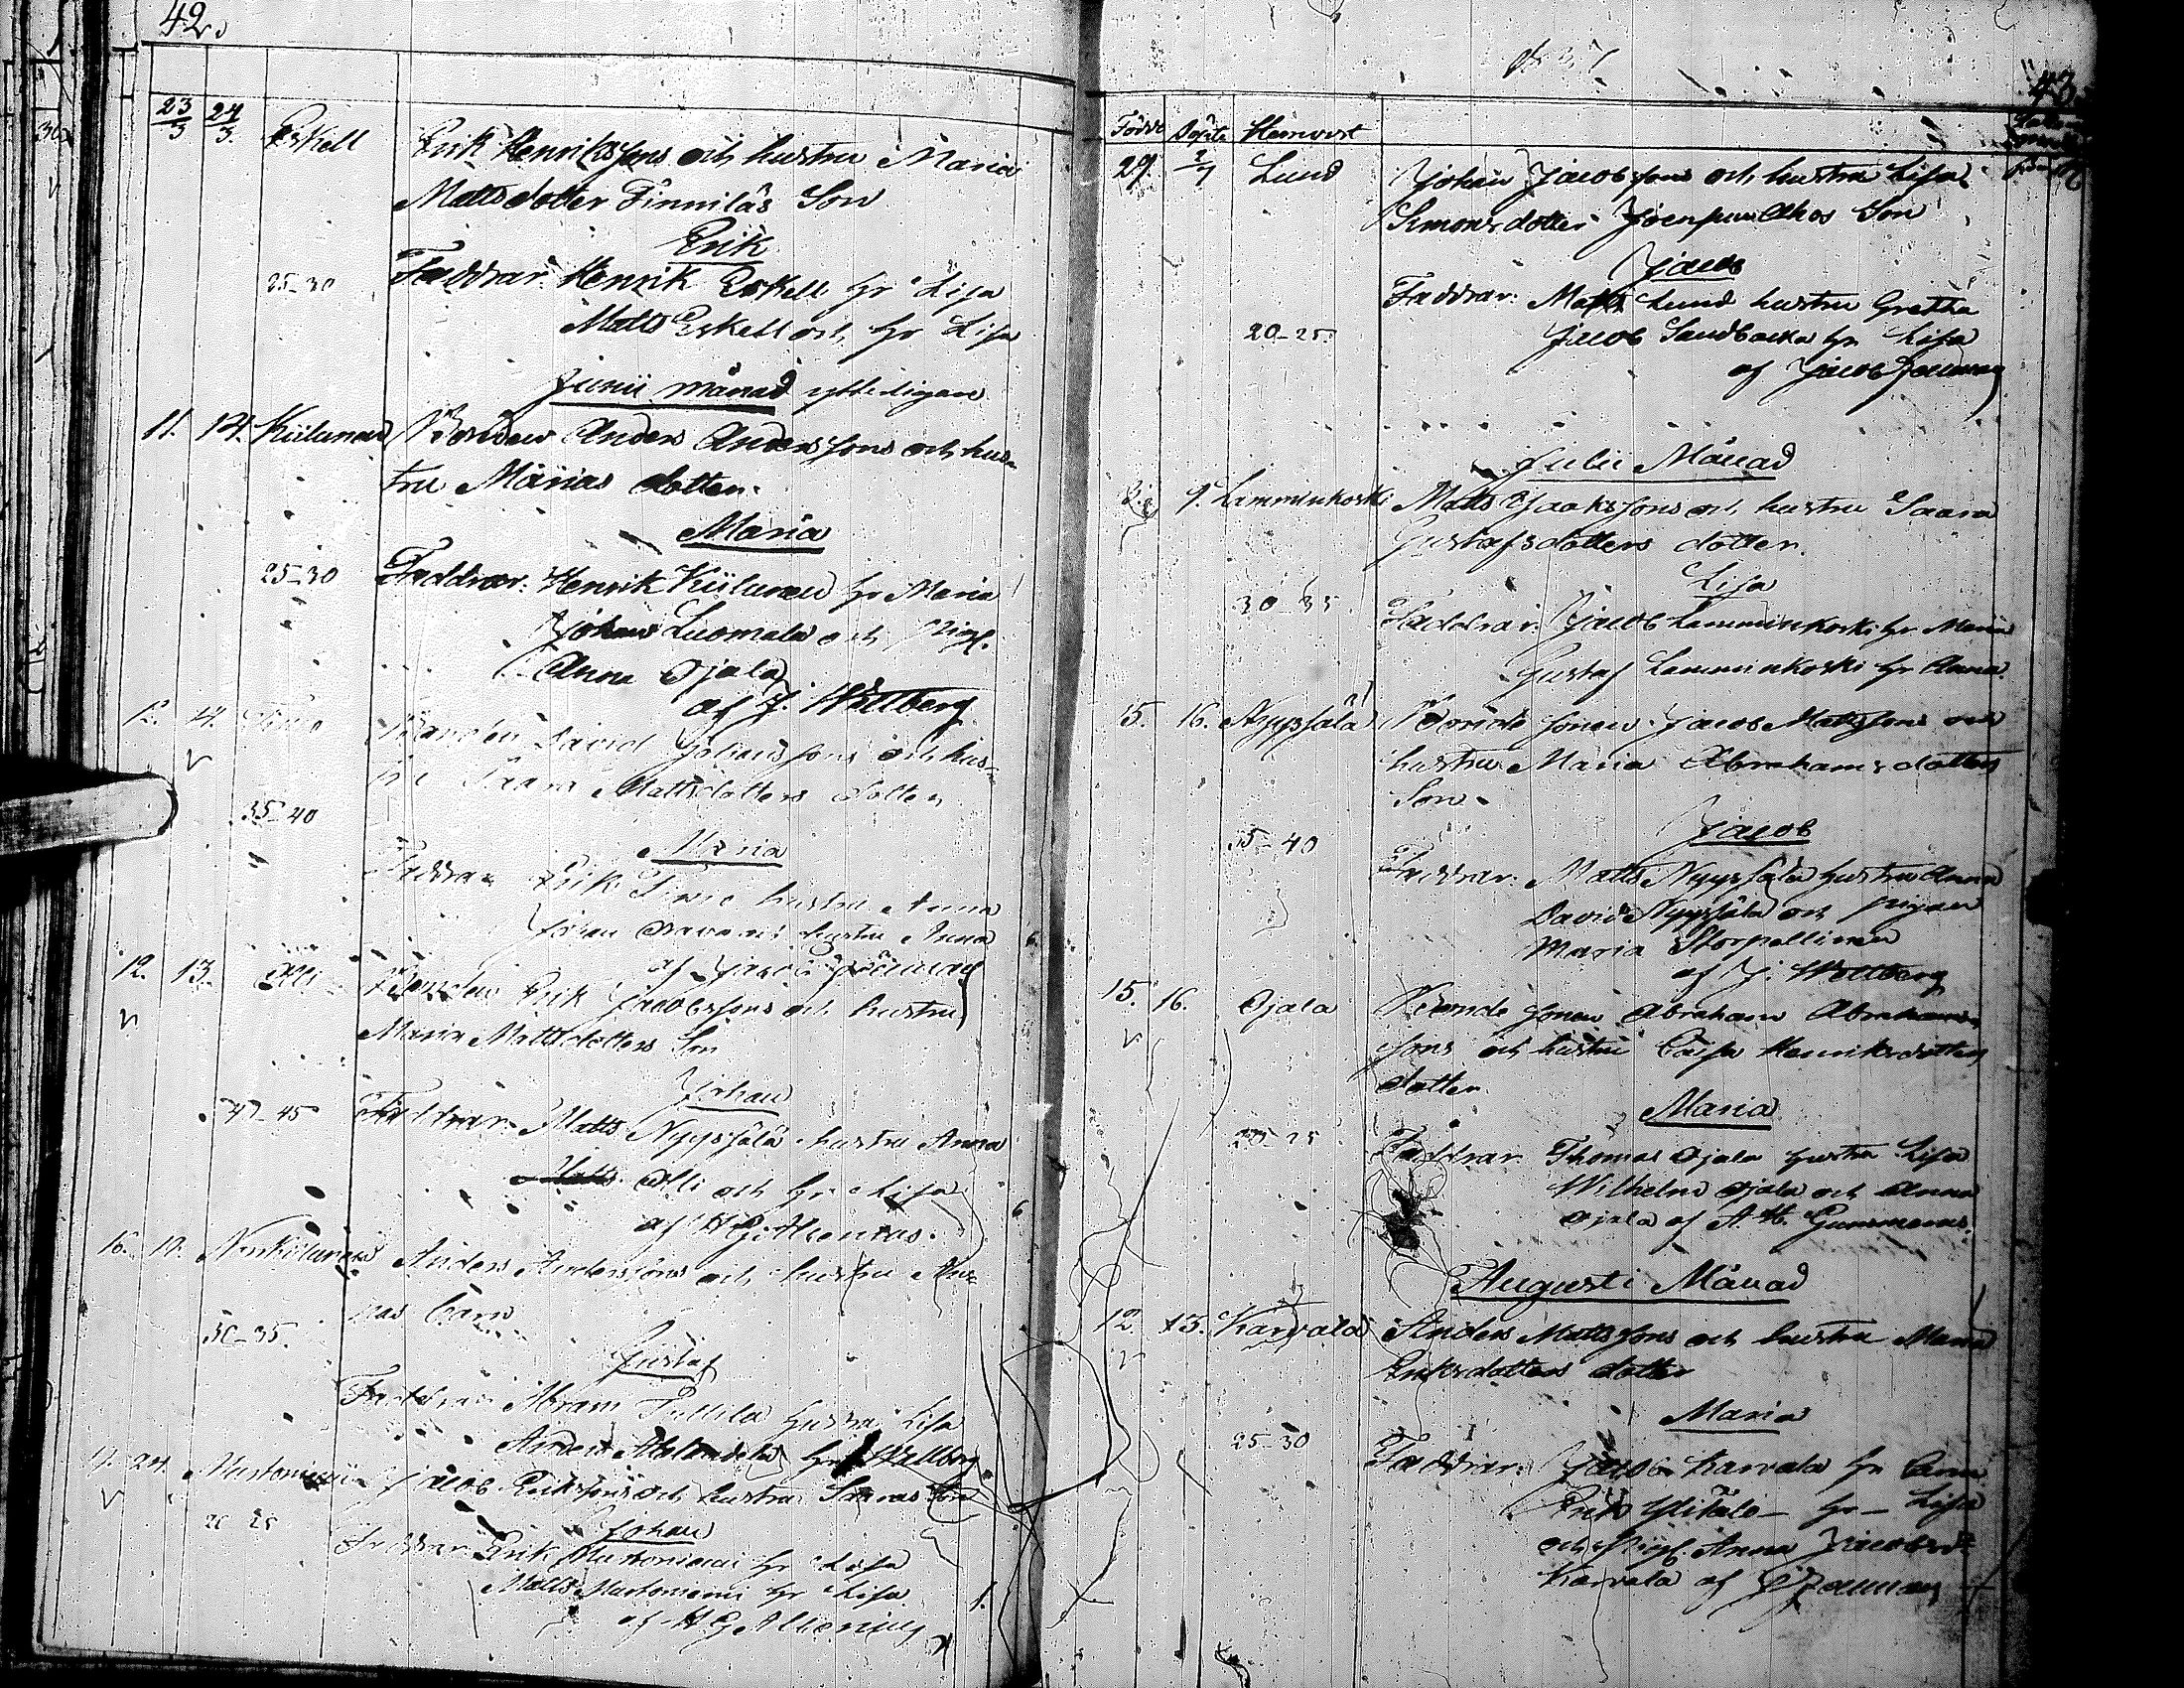 42.
23/5 24/5. Eskell Erik Henrikssons och hustru Maria
Mattsdotter Finnilas Son
Erik
25-30 Faddrar. Henrik Eskell hr Lisa
Matts Eskell och hr Lisa
Junii månad ytterligare
11. 14. Kiilunen Bonden Anders Anderssons och hus-
tru Marias dotter.
Maria
25-30 Faddrar. Henrik Kiilunen hr Maria
Johan Luomala och Pig.
Anna Ojala
af J. Wellberg
12. 14. Bonden David Johanssons och hus-
tru Saara Mattsdotters dotter
35-40
Maria
Faddrar Erik hustru Anna
Johan och hustru Anna
af Jacob
12. 13. Olli Bonden Erik Jacobssons och hustru
Maria Mattsdotters Son
Johan
40-45 Faddrar. Matts Nyyssälä hustru Anna
Matts Olli och hr Lisa
af
16. 19. Anders Anderssons och hustru An-
nas barn
30-35.
Gustaf
Faddrar Abram Pullila hustru Lisa
Anders hr Wellberg
24. Martoniemi Jacob Erikssons och hustru Saaras Son
20 25 Johan
Faddrar. Erik Martoniemi hr Lisa
Matts Martoniemi hr Lisa
af
1837
43
Födde Döpte Hemvist
29. 2/7 Lund Johan Jacobssons och hustru Lisa
Simonsdotter Son
Jacob
Faddrar: Matts Lund hustru Gretha
20-25. Jacob Sandbacka hr Lisa
af Jacob
Julii Månad
9. Lamminkoski Matts Jaakssons och hustru Saara
Gustafsdotters dotter.
Lisa
30-35. Faddrar. Jacob Lamminkoski hr Maria
Gustaf Lamminkoski hr Anna.
15. 16. Nyyssälä Bonde sonen Jacob Mattssons och
hustru Maria Abrahamsdotters
Son.
Jacob
35-40
Faddrar. Matts Nyyssälä hustru Anna
David Nyyssälä och pigan
Maria Storpellinen
af J. Wellberg
15. 16. Ojala Bonde sonen Abraham Abrahams-
sons och hustru Caisa Henriksdotters
dotter.
Maria
20-25 Faddrar. Thomas Ojala hustru Lisa
Wilhelm Ojala och Anna
Ojala af A. H.
Augusti Månad
12. 13. Karvala Anders Mattssons och hustru Maria
Eriksdotters dotter
Maria
25-30 Faddrar: Jacob Karvala hr
Erik Ylitalo - hr - Lisa
och Pig. Anna Jacobsd.
Karvala af